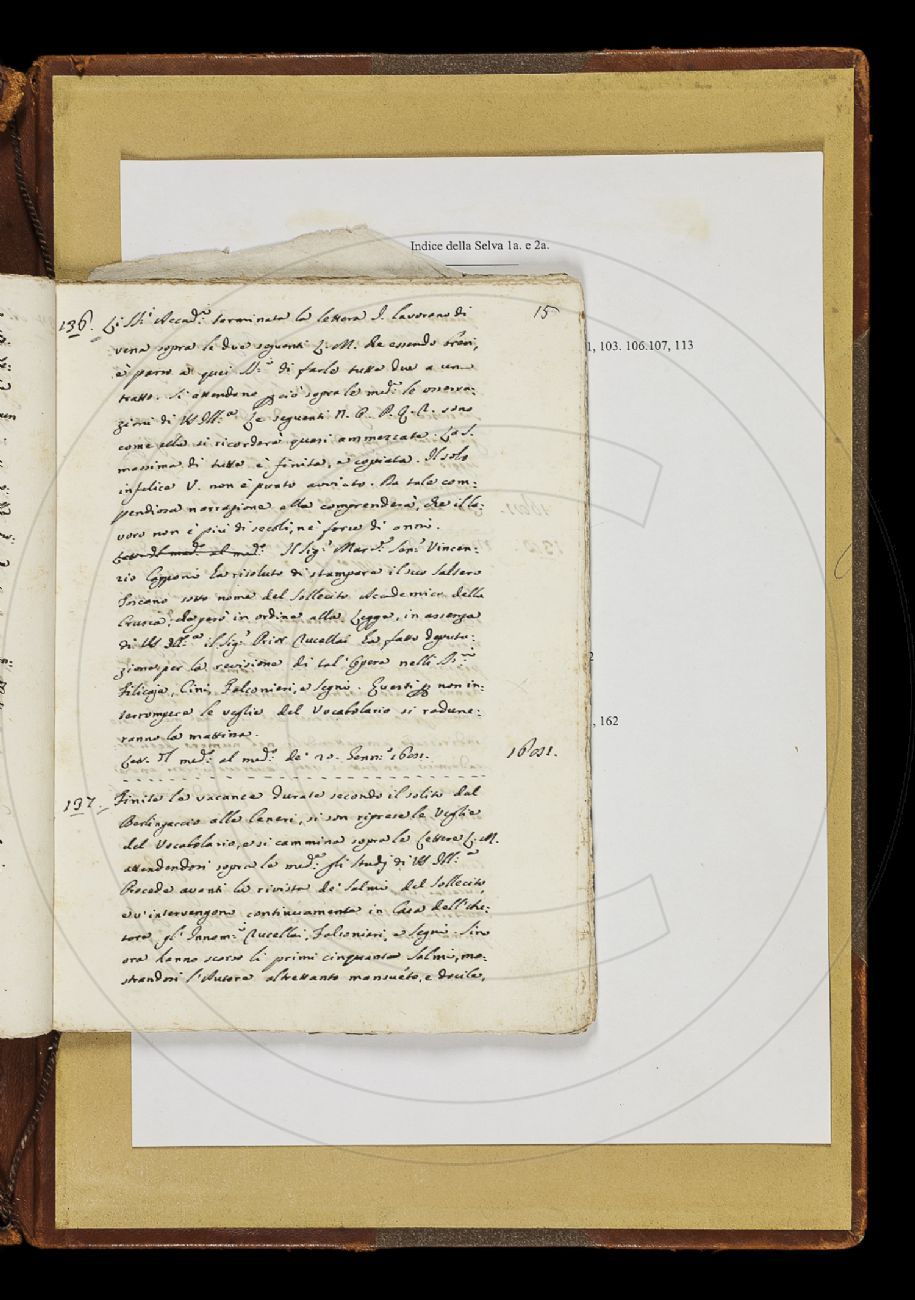 Indice della Selva 1a. e 2a.
1, 103. 106.107, 113
, 162
15
136. Li SS.i Accad.i terminata la lettera I. lavorano di
vena sopra le due seguenti L. M. che essendo brevi,
è parso a quei SS.i di farle tutte due a un
tratto. Si attendono però sopra le med.e le osserva:
zioni di VS Ill.a Le seguenti N. O. P. Q. R. sono
come ella si ricorderà quasi ammezzate. La S.
massima di tutte è finita, e copiata. Il solo
infelice V. non è punto avviato. Da tale com:
pendiosa narrazione ella comprenderà, che il la:
voro non è più di secoli, nè forse di anni.
Il Sig.r Mar.se Sen.r Vincen:
zio Capponi ha risoluto di stampare il suo Saltero
Toscano sotto nome del Sollecito Academico della
Crusca; che però in ordine alla Legge, in assenza
di VS Ill.a il Sig.r Prior Rucellai ha fatto deputa:
zione per la revisione di tal' Opera nelli SS.ri
Filicaja, Cini, Falconieri, e Segni. Questi per non in:
terrompere le veglie del Vocabolario si radune:
ranno la mattina.
Lett. Il med.o al med.o de' 20. Genn.o
137. Finite le vacanze durate secondo il solito dal
Berlingaccio alle Ceneri, si son riprese le Veglie
del Vocabolario, e si cammina sopra le Lettere L. M.
attendendosi sopra le med.e gli Studj di VS Ill.a
Procede avanti la rivista de' Salmi del Sollecito,
e v'intervengono continuamente in Casa dell'Au:
tore gl' Innom.i Rucellai, Falconieri, e Segni. Sin'
ora hanno scorso li primi cinquanta Salmi, mo:
strandosi l'Autore altrettanto mansueto, e docile,